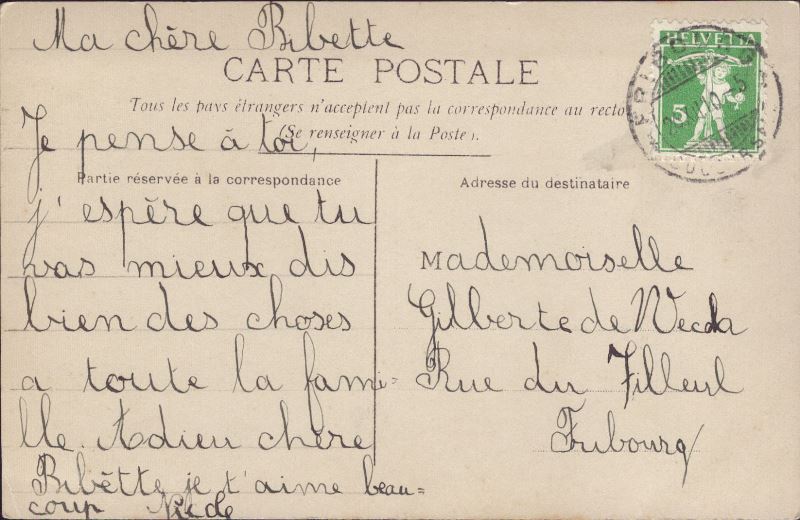 Ma chère Bibette
CARTE POSTALE
Tous les pays étrangers n'acceptent pas la correspondance au recto
(Se renseigner à la Poste).
Je pense à toi,
Partie réservée à la correspondance
j'espère que tu
vas mieux dis
bien des choses
a toute la fami=
lle. Adieu chère
Bibètte je t'aime beau=
coup
HELVETIA
5
Adresse du destinataire
Mademoiselle
Gilberte de
Rue du Tilleul
Fribourg